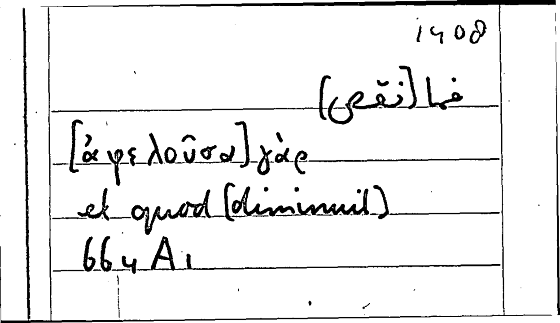 1408
فما [نقص]
[ἀφελοῦσα] γὰρ
et quod [diminuit]
664 A1